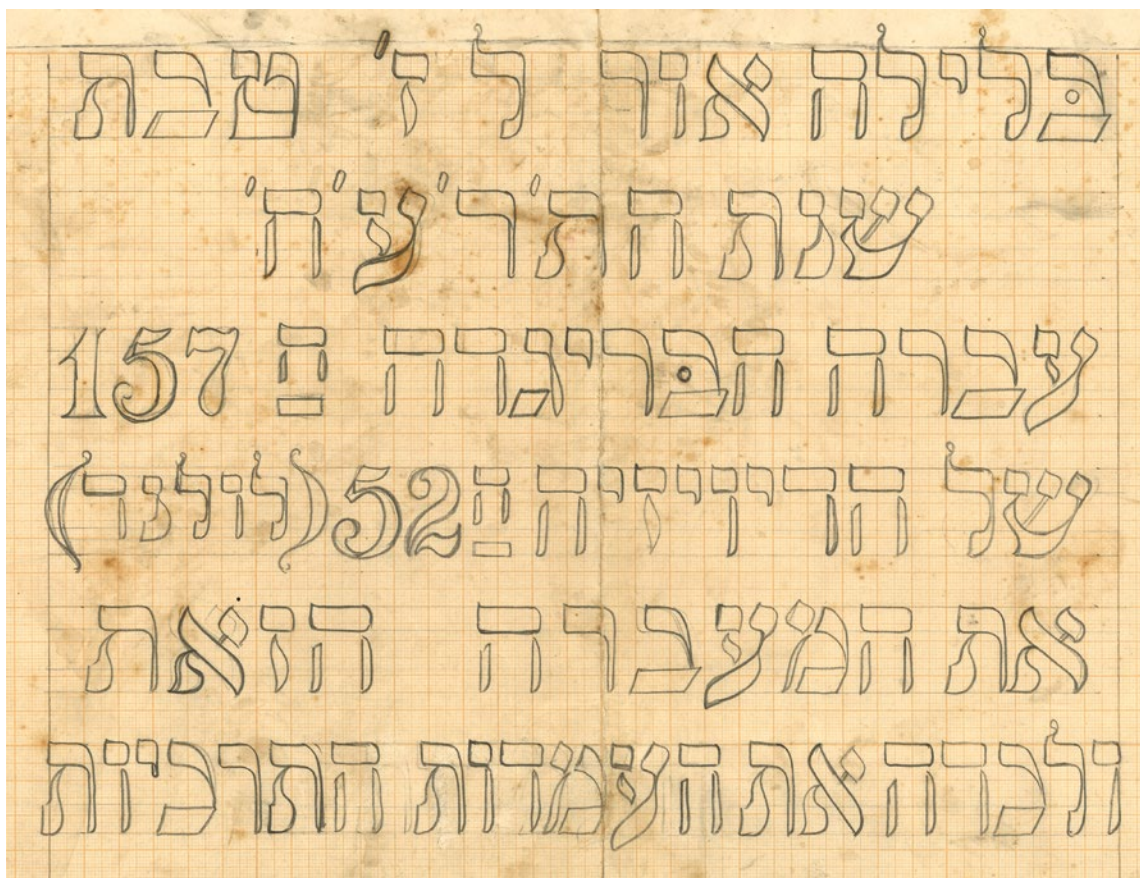 בּלילה אור ל ז' טבת
שנת ה'ת'ר'ע'ח'
עברה הבּריגדה ה 157
של הדיויזיה ה 52 (לולנד)
את המעברה הזאת
ולכדה את העמדות התרכיות